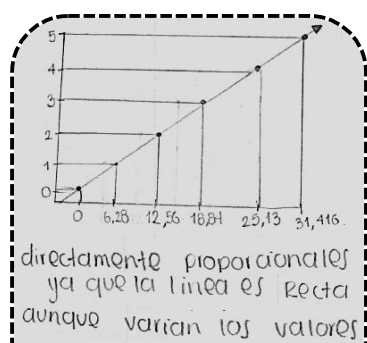 5
4
3
2
1
0
0 6,28 12,56 18,84 25,13 31,416.
directamente proporcionales
ya que la linea es Recta
aunque varian los valores